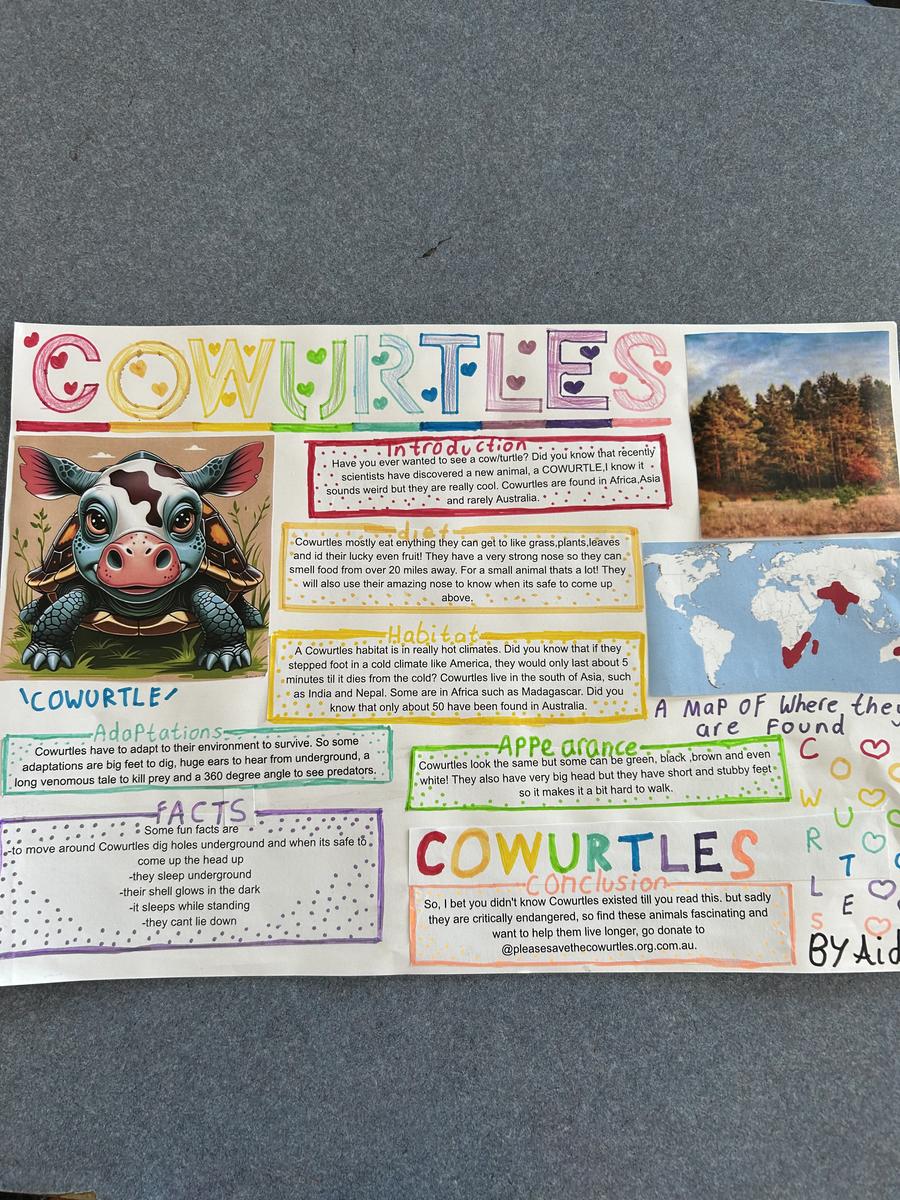 COWURTLES
Introduction
Have you ever wanted to see a cow/turtle? Did you know that recently
scientists have discovered a new animal, a COWURTLE,I know it
sounds weird but they are really cool. Cowurtles are found in Africa,Asia
and rarely Australia.
diet
Cowurtles mostly eat enything they can get to like grass,plants,leaves
and id their lucky even fruit! They have a very strong nose so they can
smell food from over 20 miles away. For a small animal thats a lot! They
will also use their amazing nose to know when its safe to come up
above.
Habitat
A Cowurtles habitat is in really hot climates. Did you know that if they
stepped foot in a cold climate like America, they would only last about 5
minutes til it dies from the cold? Cowurtles live in the south of Asia, such
as India and Nepal. Some are in Africa such as Madagascar. Did you
know that only about 50 have been found in Australia.
'COWURTLE'
A MaP OF Where they
are Found
AdaPtations
Cowurtles have to adapt to their environment to survive. So some
adaptations are big feet to dig, huge ears to hear from underground, a
long venomous tale to kill prey and a 360 degree angle to see predators.
APPearance
Cowurtles look the same but some can be green, black ,brown and even
white! They also have very big head but they have short and stubby feet
so it makes it a bit hard to walk.
FACTS
Some fun facts are
-to move around Cowurtles dig holes underground and when its safe to
come up the head up
-they sleep underground
-their shell glows in the dark
-it sleeps while standing
-they cant lie down
COWURTLES
conclusion
So, I bet you didn't know Cowurtles existed till you read this. but sadly
they are critically endangered, so find these animals fascinating and
want to help them live longer, go donate to
@pleasesavethecowurtles.org.com.au.
C
O
W
U
R
T
L
E
S
BY Aid